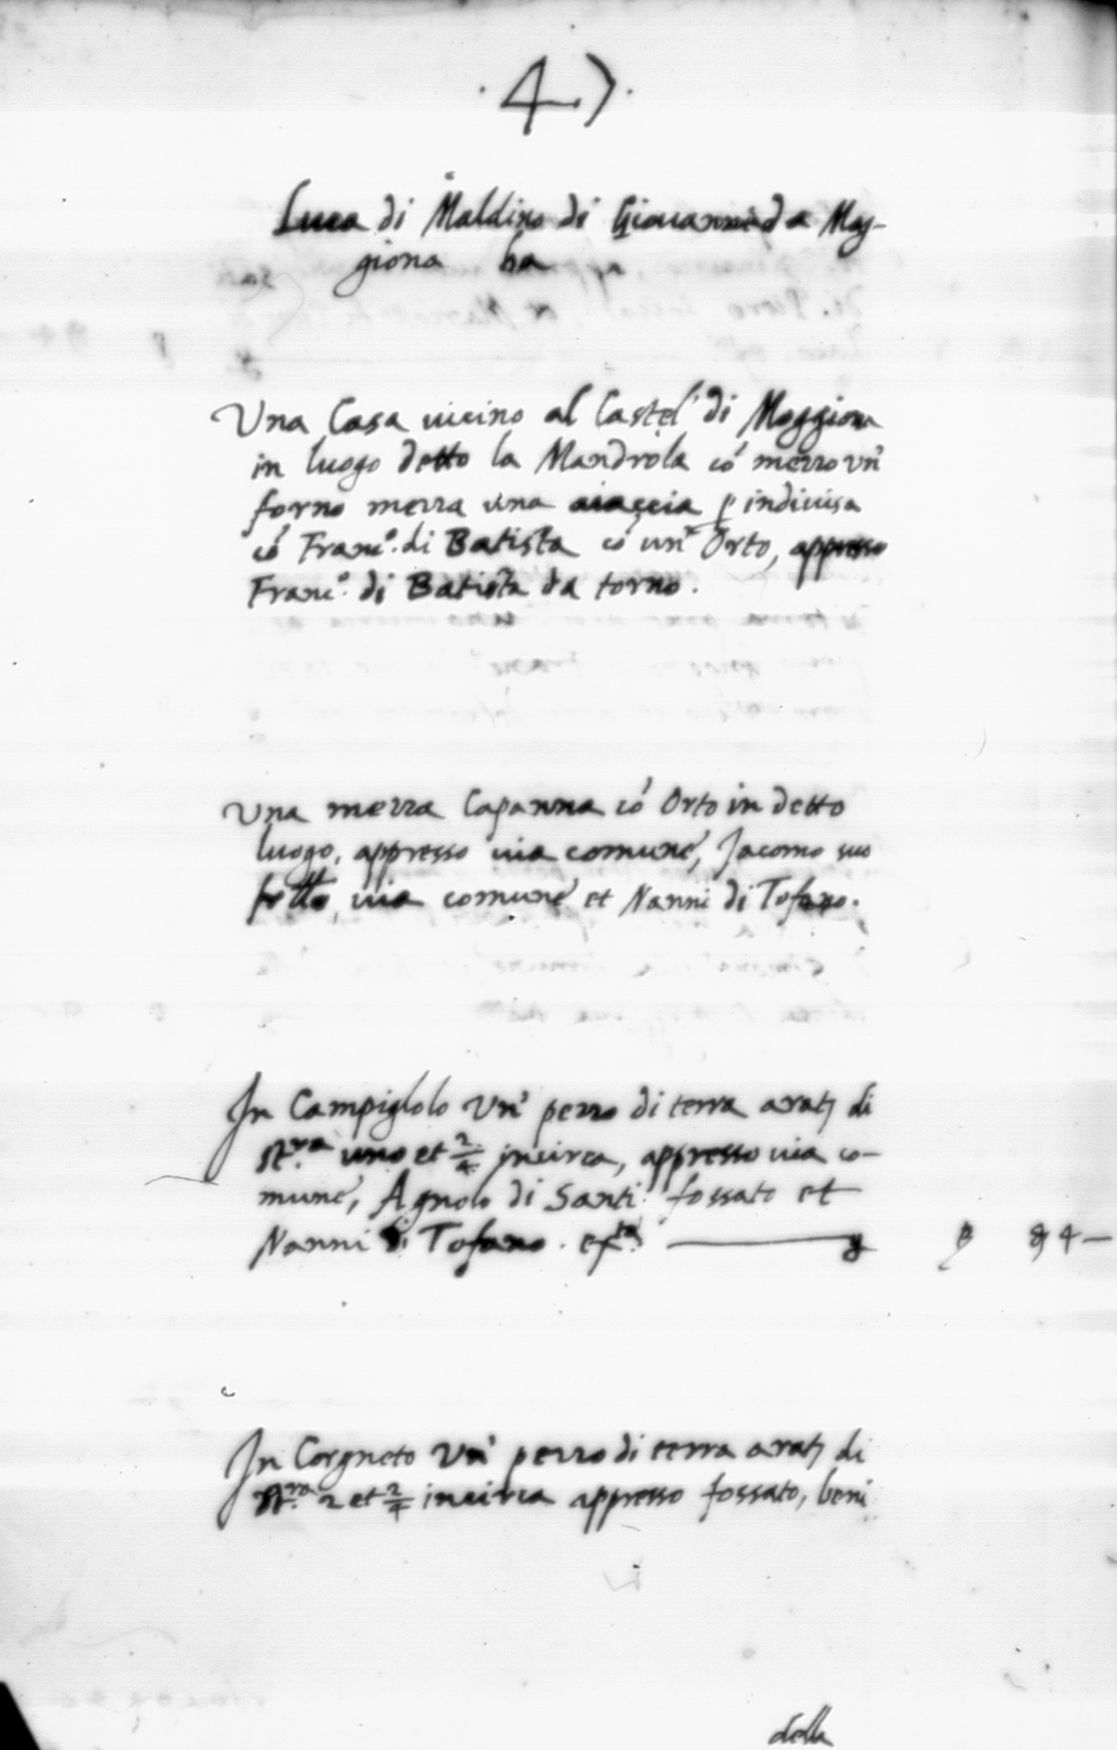 .47.
Luca di Maldino di Giouanni da Mog-
giona ha
Una Casa uicino al Castel' di Moggiona
in luogo detto la Mandrola có mezzo vn'
forno mezza una aiaccia p indiuisa
có Franc.º di Batista có un' Orto, appresso
Franc.º di Batista da torno.
Una mezza Capanna có Orto in detto
luogo, appresso uia comune', Jacomo suo
frētto, uia comune' et Nanni di Tofano.
In Campiglolo Vn' pezzo di terra arat, di
st.ra uno et 2/4 incirca, appresso uia co-
mune', Agnolo di Santi fossato et
Nanni di Tofano.
In Corgneto Vn' pezzo di terra arat, di
st.ra 2 et 2/4 incirca appresso fossato, beni
della